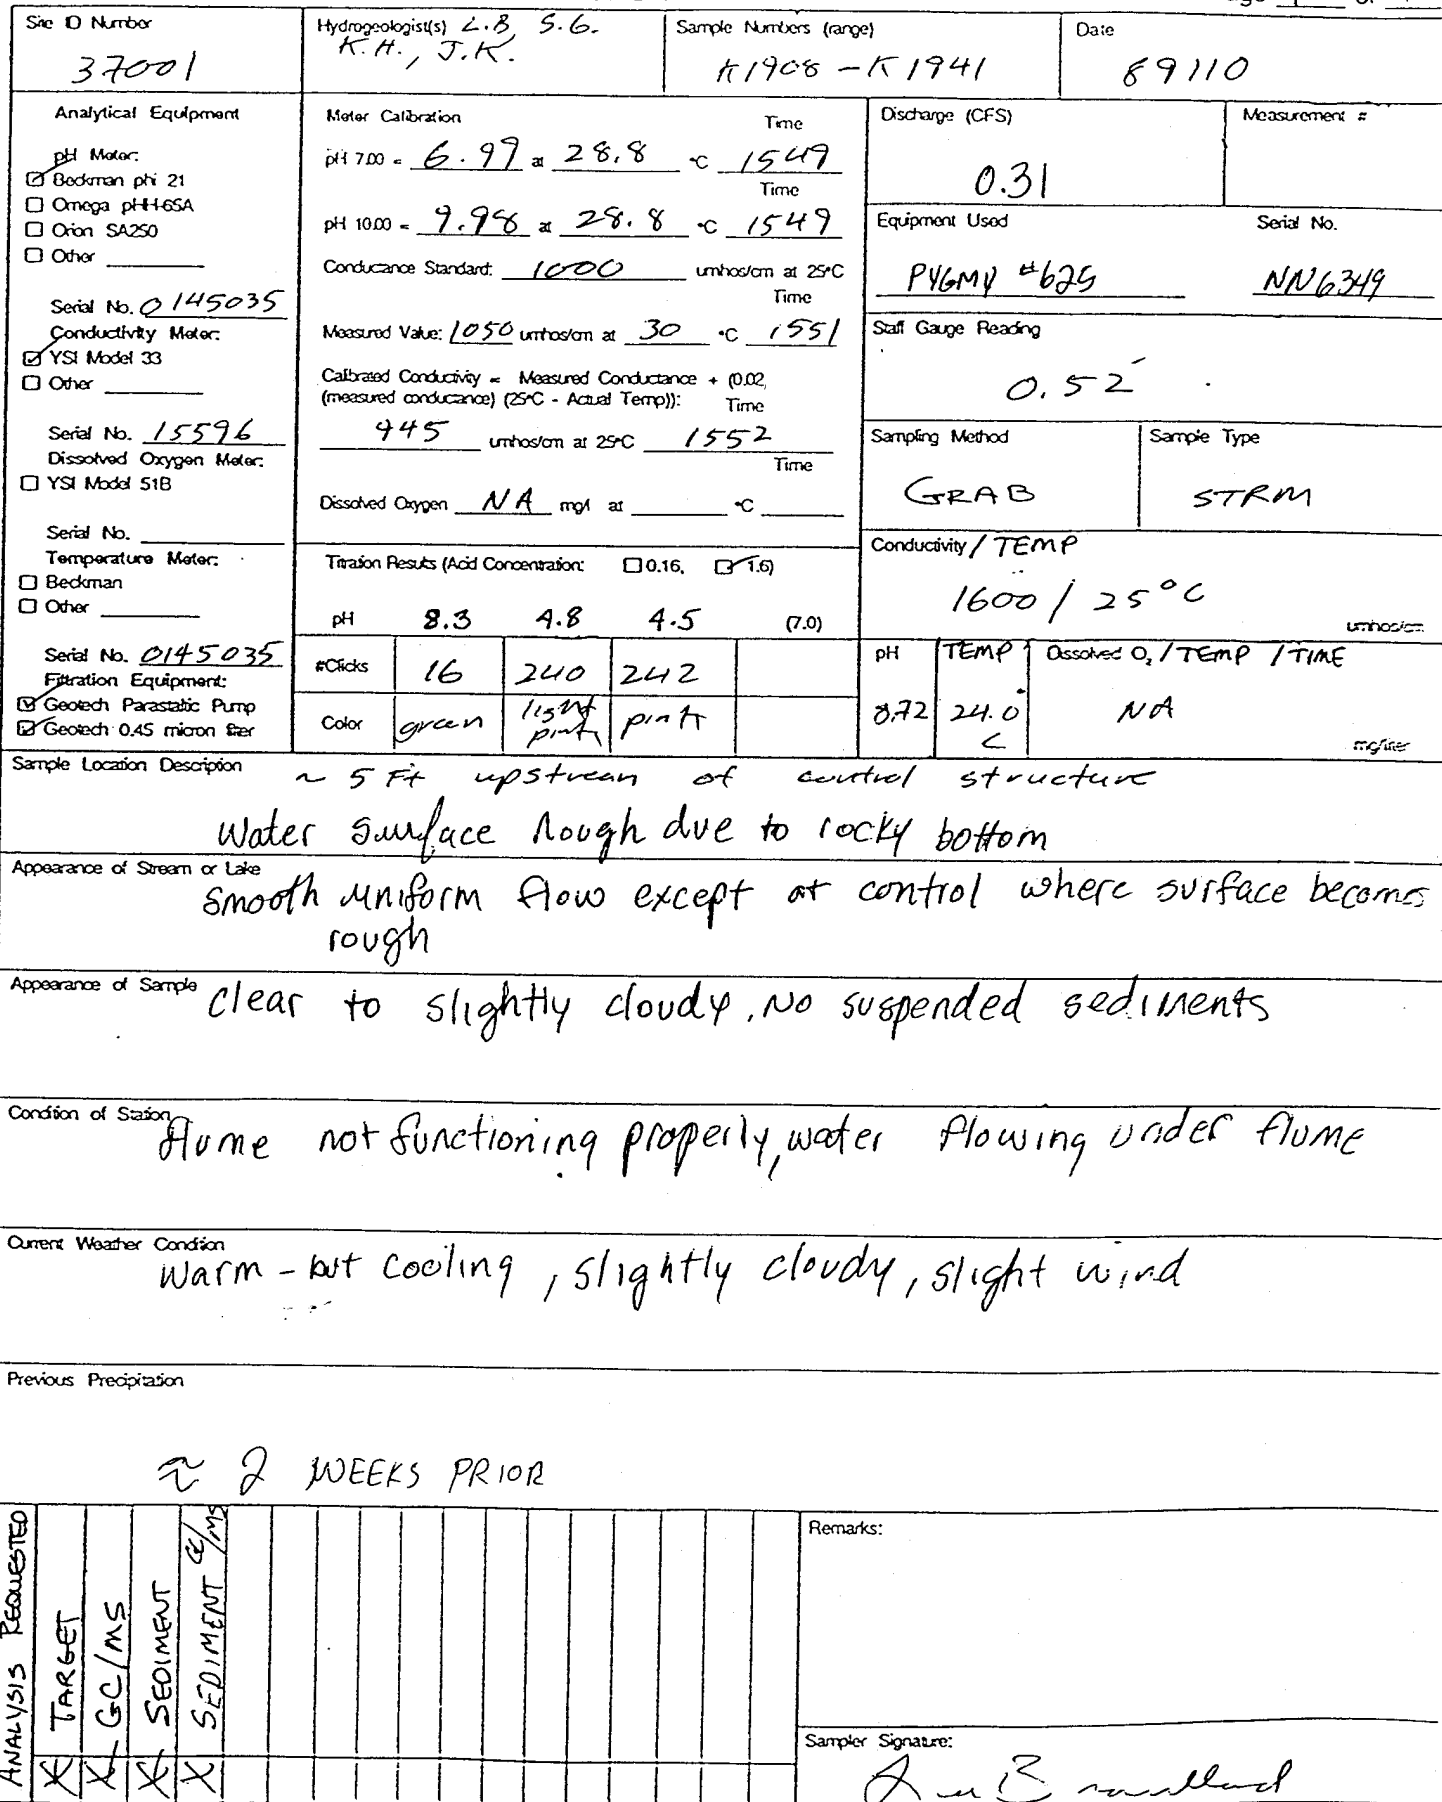 Site ID Number
37001
Hydrogeologist(s) L.B, S.G.
K.H., J.K.
Sample Numbers (range)
K1908 - K1941
Date
89110
Analytical Equipment
pH Meter:
☑ Beckman phi 21
☐ Omega pHH-65A
☐ Orion SA250
☐ Other
Serial No. 0145035
Conductivity Meter:
☑ YSI Model 33
☐ Other
Serial No. 15596
Dissolved Oxygen Meter:
☐ YSI Model 51B
Serial No.
Temperature Meter:
☐ Beckman
☐ Other
Serial No. 0145035
Filtration Equipment:
☑ Geotech Parastatic Pump
☑ Geotech 0.45 micron filter
Meter Calibration Time
pH 7.00 = 6.99 at 28.8 °C 1549
Time
pH 10.00 = 9.98 at 28.8 °C 1549
Conductance Standard: 1000 umhos/cm at 25°C
Time
Measured Value: 1050 umhos/cm at 30 °C 1551
Calibrated Conductivity = Measured Conductance + (0.02,
(measured conductance) (25°C - Actual Temp)): Time
945 umhos/cm at 25°C 1552
Time
Dissolved Oxygen NA mg/l at °C
Titration Results (Acid Concentration: ☐ 0.16, ☑ 1.6)
pH 8.3 4.8 4.5 (7.0)
#Clicks 16 240 242
Color green light pink pink
Discharge (CFS)
0.31
Measurement #
Equipment Used Serial No.
PYGMY #625 NN6349
Staff Gauge Reading
0.52
Sampling Method
GRAB
Sample Type
STRM
Conductivity / TEMP
1600 / 25°C
umhos/cm
pH TEMP Dissolved O₂ / TEMP / TIME
8.72 24.0 C NA
mg/liter
Sample Location Description ~ 5 Ft upstream of control structure
Water surface rough due to rocky bottom
Appearance of Stream or Lake
smooth uniform flow except at control where surface becomes
rough
Appearance of Sample clear to slightly cloudy, No suspended sediments
Condition of Station
flume not functioning properly, water flowing under flume
Current Weather Condition
Warm - but cooling, slightly cloudy, slight wind
Previous Precipitation
≈ 2 WEEKS PRIOR
ANALYSIS REQUESTED
X TARGET
X GC/MS
X SEDIMENT
X SEDIMENT GC/MS
Remarks:
Sampler Signature: